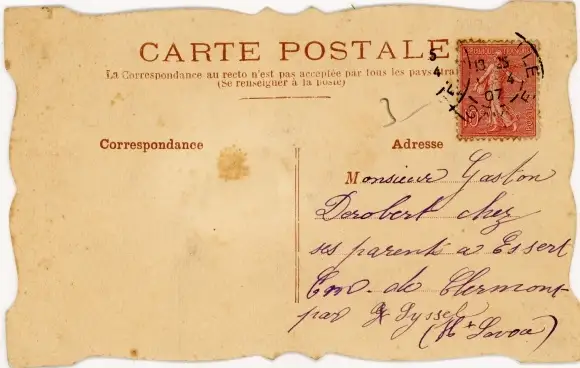 CARTE POSTALE
La Correspondance au recto n'est pas acceptée par tous les pays
(Se renseigner à la poste)
3
Correspondance
Adresse
Monsieur Gaston
Derobert chez
ses parents a Essert
Com. de Clermont
par Syssel
(Hte Savoie)
13 35
4
07